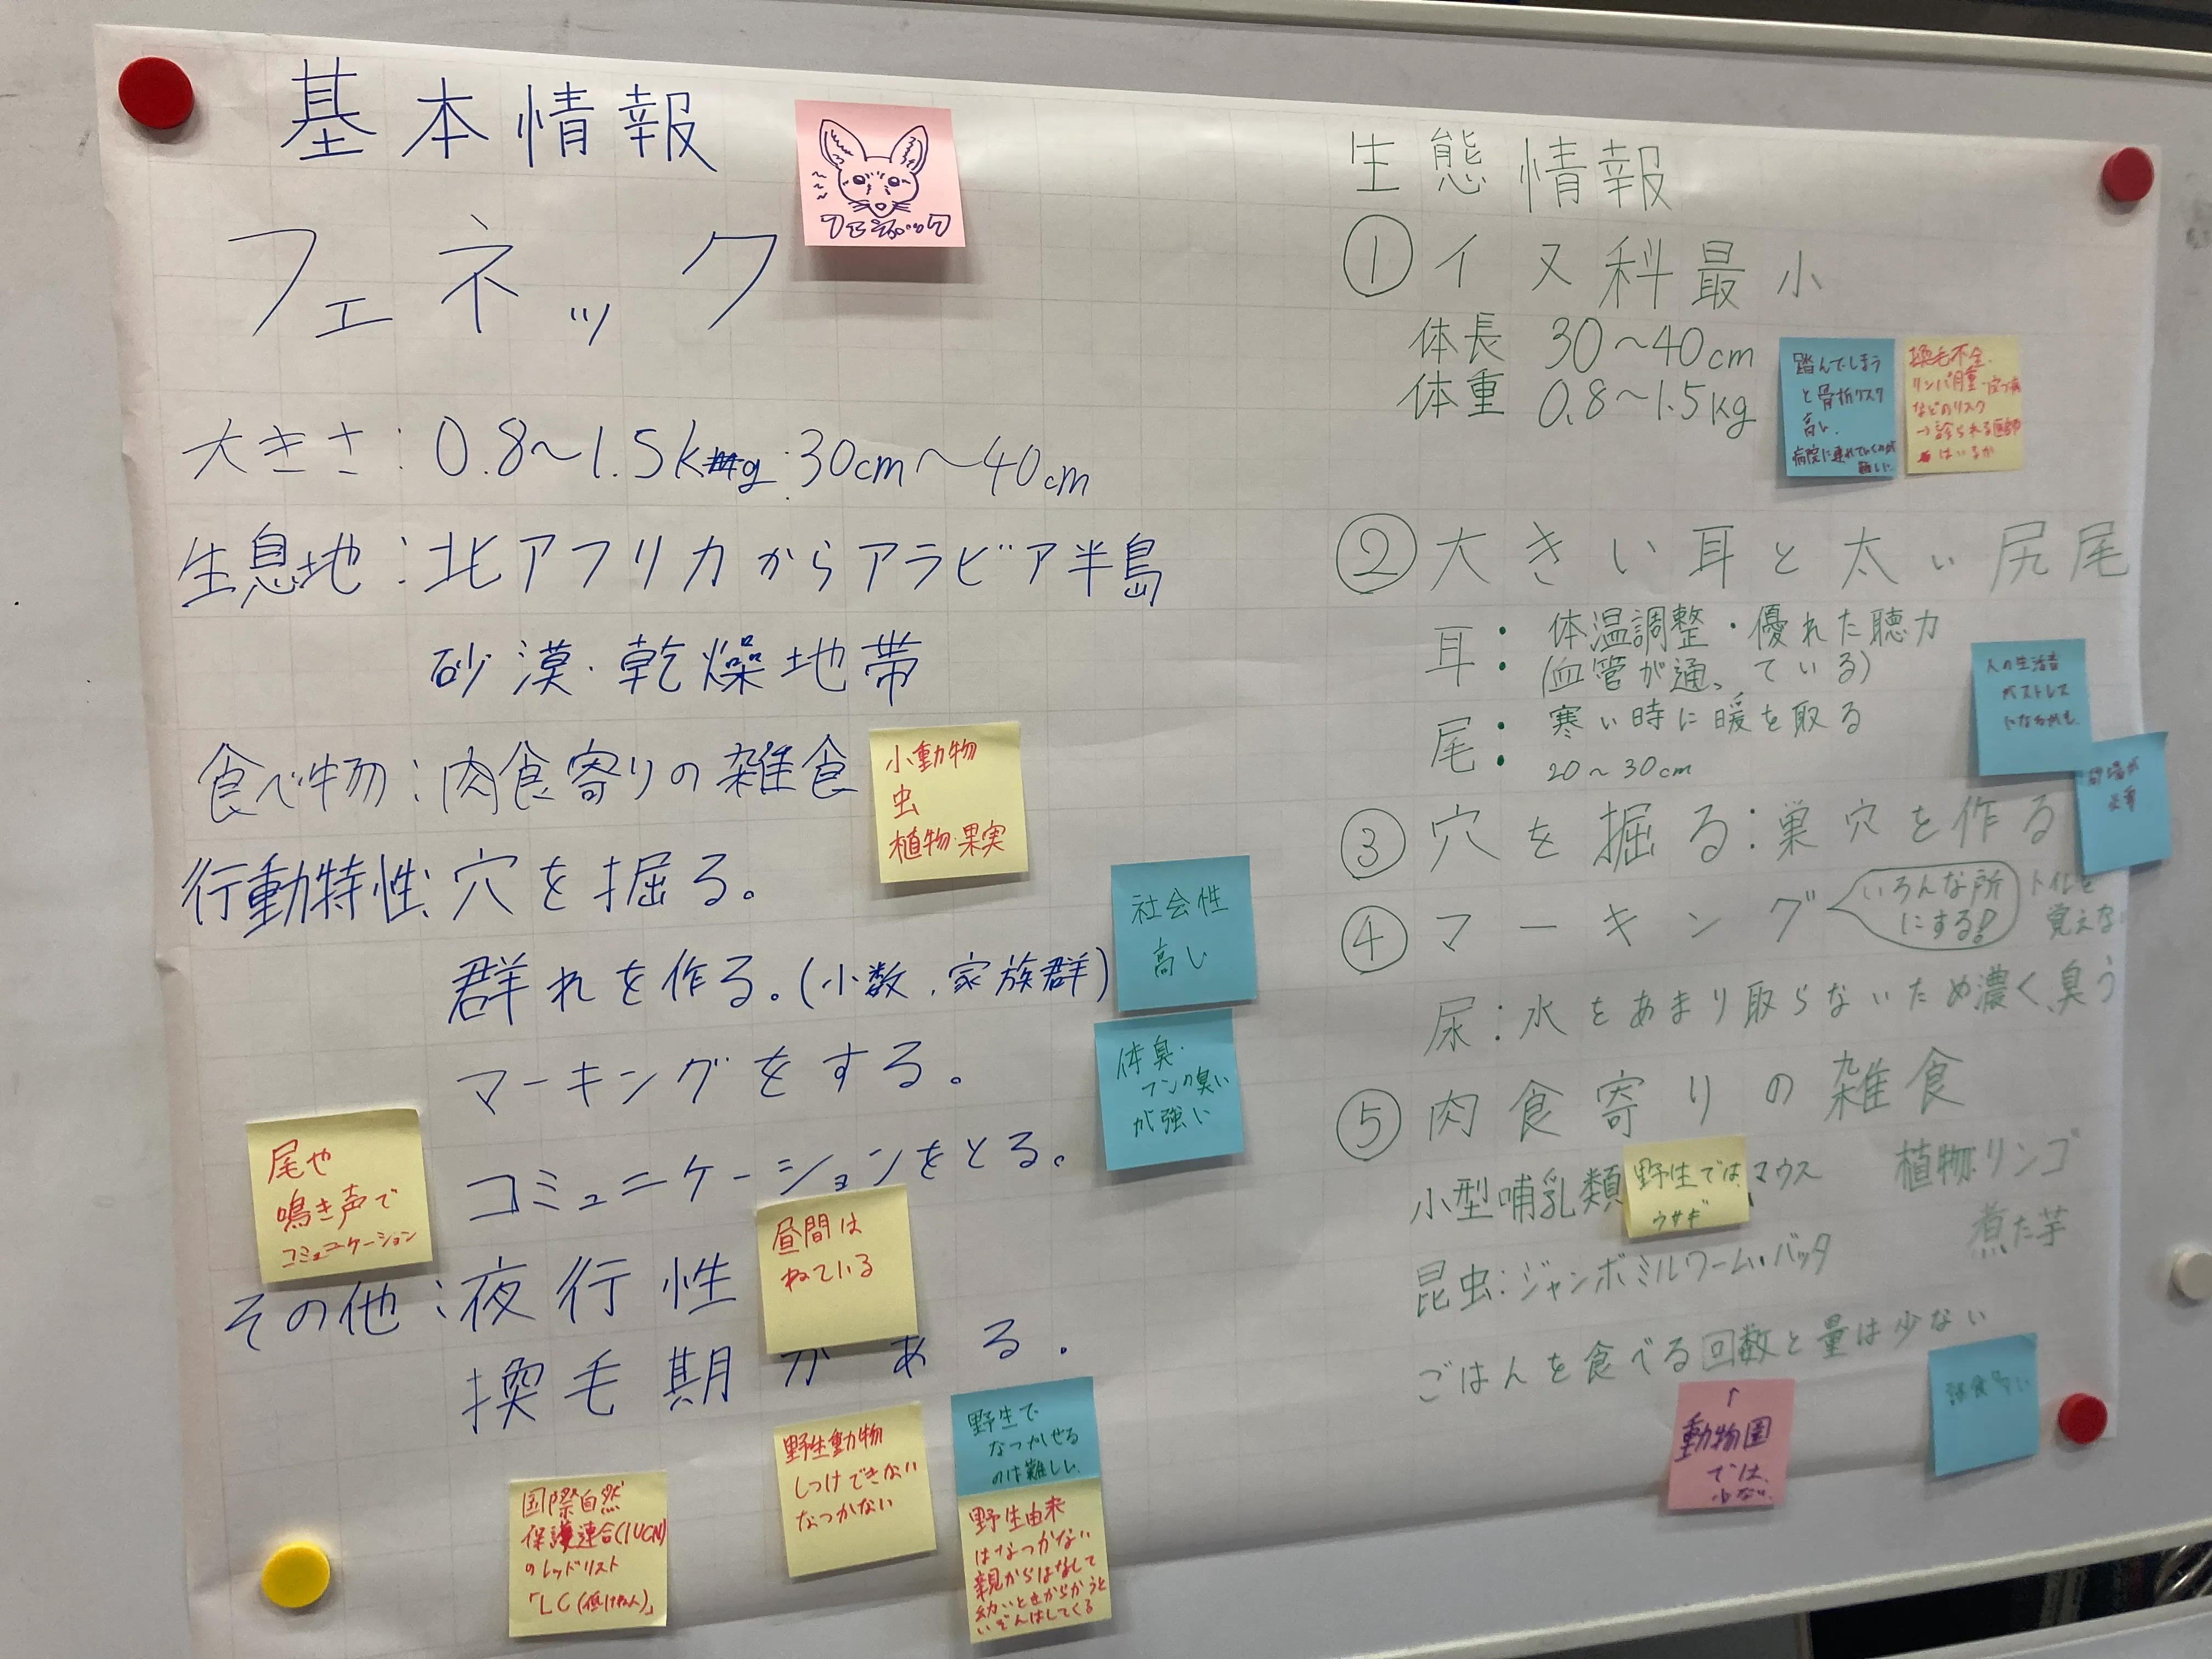 基本情報
フェネック
フェネック
大きさ:0.8〜1.5kg:30cm〜40cm
生息地:北アフリカからアラビア半島
砂漠・乾燥地帯
食べ物:肉食寄りの雑食
小動物
虫
植物・果実
行動特性:穴を掘る。
群れを作る。(小数、家族群)
社会性
高い
マーキングをする。
体臭・
フンの臭い
が強い
コミュニケーションをとる。
尾や
鳴き声で
コミュニケーション
その他:夜行性
昼間は
ねている
換毛期がある.
国際自然
保護連合(IUCN)
のレッドリスト
「LC(低けねん)」
野生動物
しつけできない
なつかない
野生で
なつかせる
のは難しい.
野生由来
はなつかない
親からはなして
幼いときからかうと
いぞんはしてくる
生態情報
①イヌ科最小
体長 30〜40cm
体重 0.8〜1.5kg
踏んでしまう
と骨折リスク
高い.
病院に連れていくのが
難しい
換毛不全.
などのリスク
→診られる医師
はいるか
②大きい耳と太い尻尾
耳:体温調整・優れた聴力
(血管が通っている)
尾:寒い時に暖を取る
20〜30cm
人の生活音
がストレス
になるかも.
砂場が
必要
③穴を掘る:巣穴を作る
④マーキング
いろんな所
にする!
トイレを
覚えな
尿:水をあまり取らないため濃く、臭う
⑤肉食寄りの雑食
小型哺乳類
野生では
ウサギ
マウス
植物:リンゴ
煮た芋
昆虫:ジャンボミルワーム・バッタ
ごはんを食べる回数と量は少ない
↑
動物園
では、
少ない.